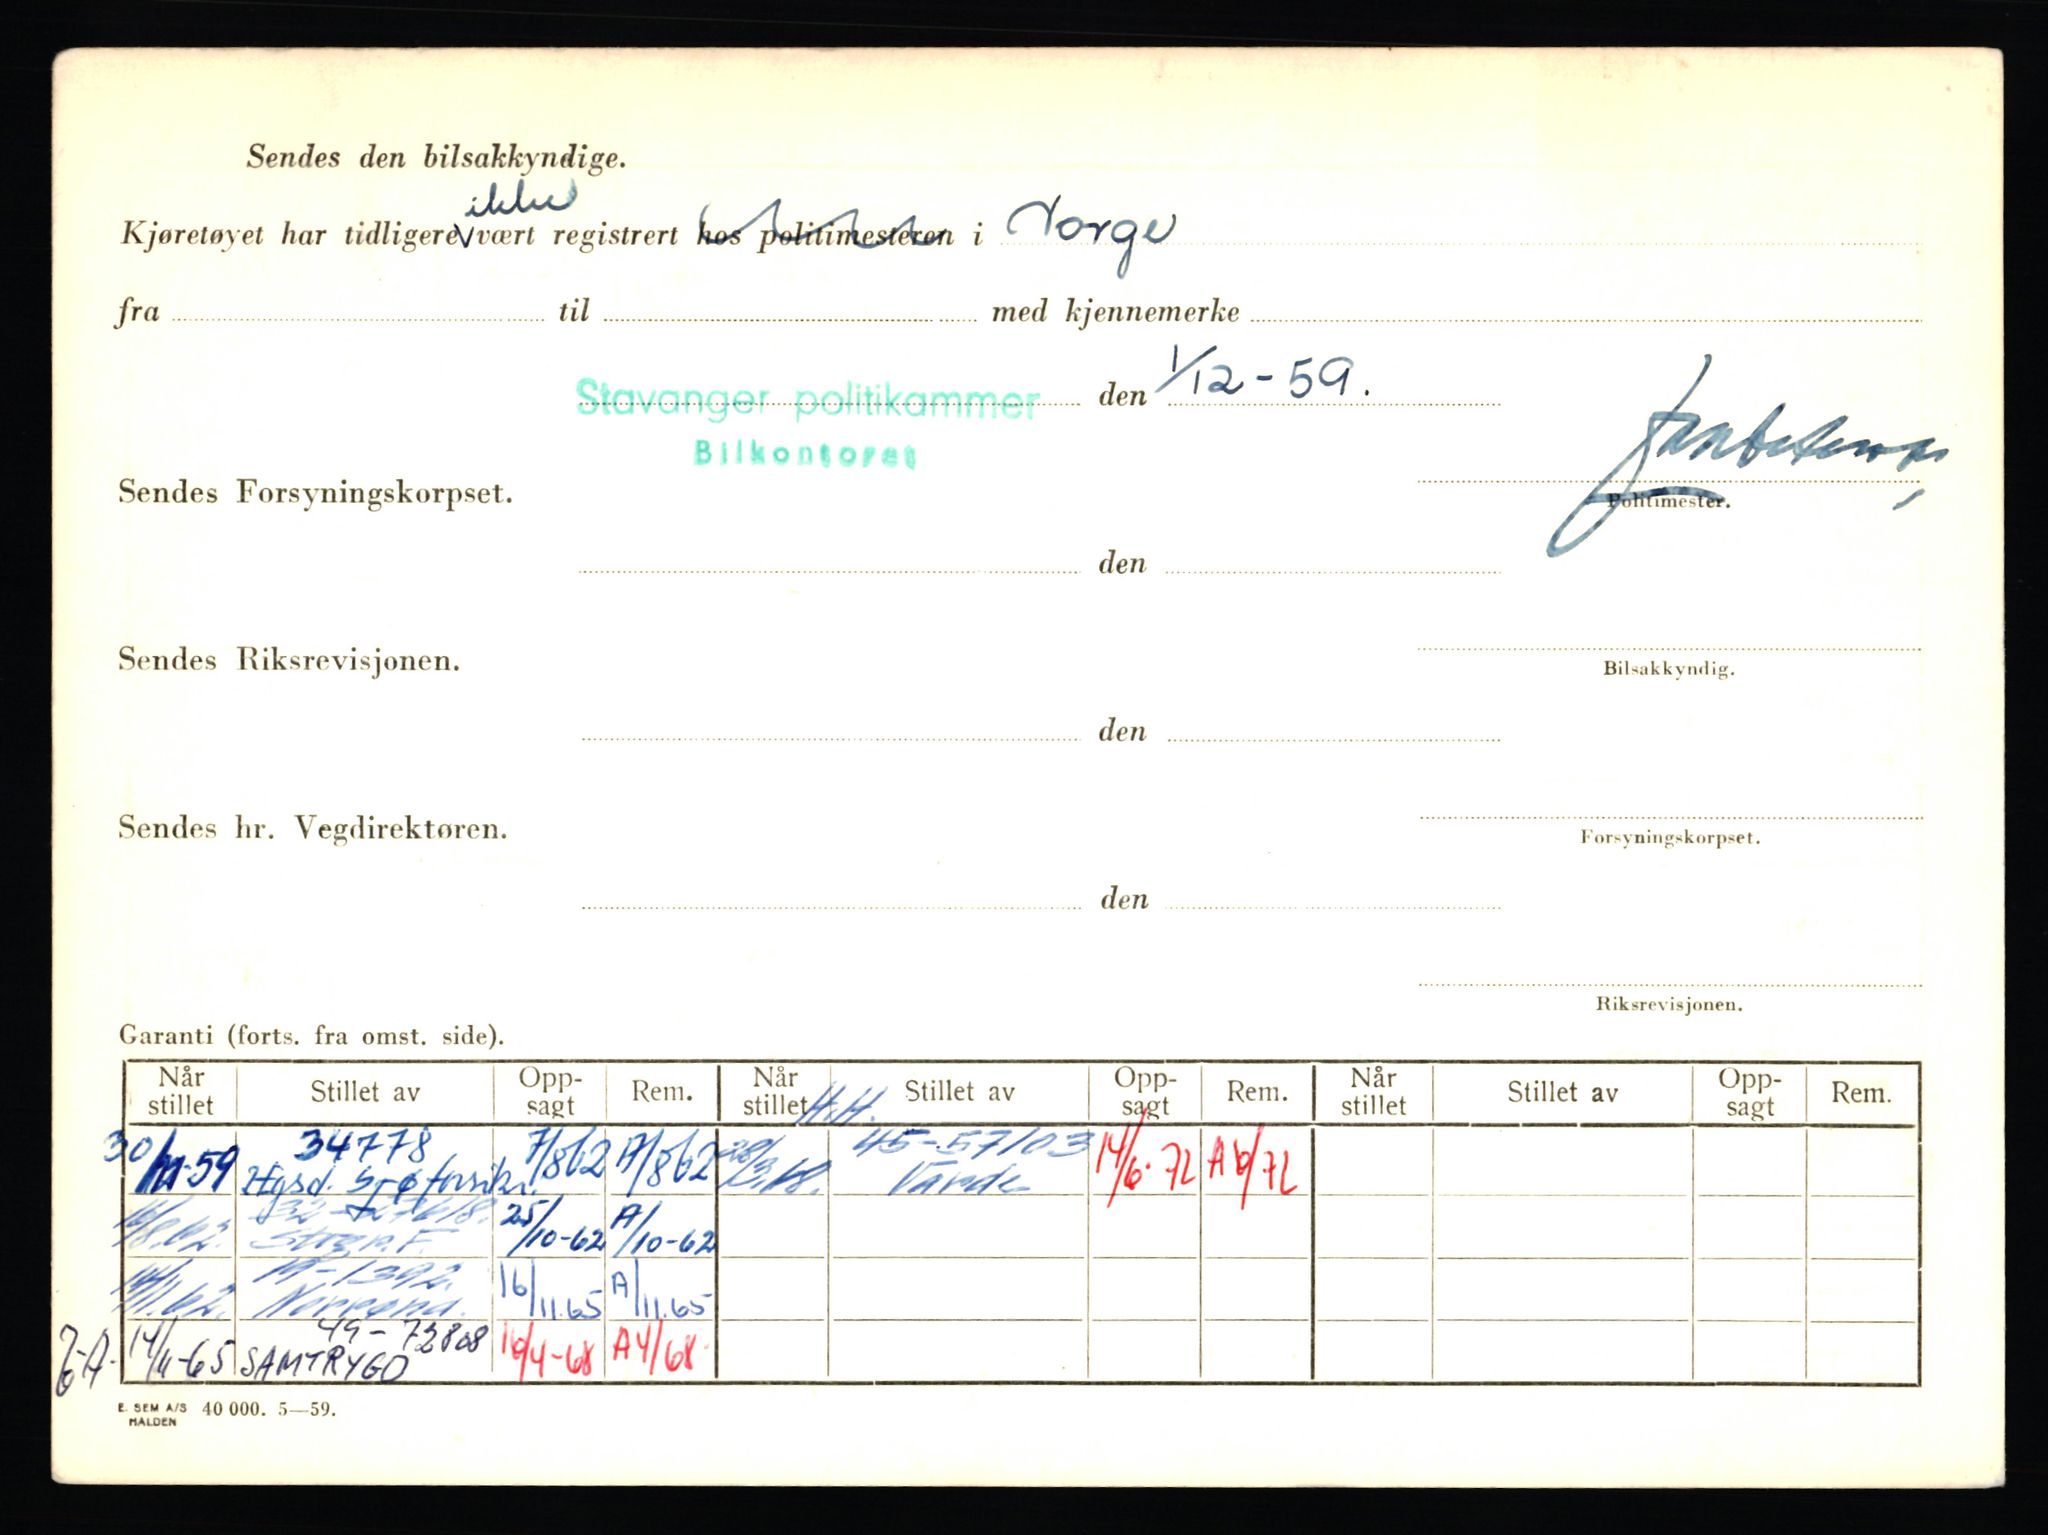 Sendes den bilsakkyndige.
ikke
Kjøretøyet har tidligere vært registrert hos politimesteren i Norge
fra til med kjennemerke
Stavanger politikammer den 1/12-59.
Bilkontoret
Sendes Forsyningskorpset.
Politimester.
den
Sendes Riksrevisjonen.
Bilsakkyndig.
den
Sendes hr. Vegdirektøren.
Forsyningskorpset.
den
Riksrevisjonen.
Garanti (forts. fra omst. side).
Når stillet Stillet av Opp-sagt Rem. Når stillet Stillet av Opp-sagt Rem. Når stillet Stillet av Opp-sagt Rem.
H.H.
30/11-59 34778 7/8 62 A/8 62 45-57103 14/6-72 A 6/72
Varde
25/10-62 A/10-62
16/11.65 A/11.65
49-72808
14/11-65 SAMTRYGD 16/4-68 A 4/68
E. SEM A/S 40 000. 5—59.
HALDEN